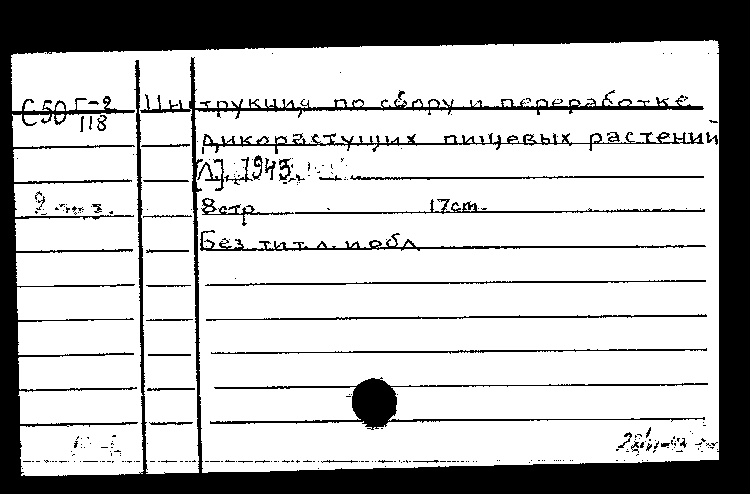 С50 Г-2/118 Инструкция по сбору и переработке
дикорастущих пищевых растений
[Л], 1943.
2 экз. 8 стр. 17 cm.
Без тит. л. и обл.